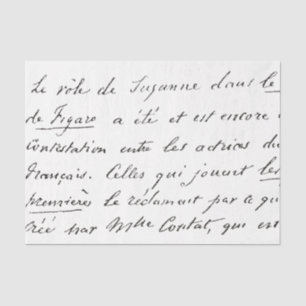 Le rôle de Suzanne dans le
de Figaro a été et est encore
contestation entre les actrices du
Français. Celles qui jouent les
premières le réclament par ce qu
créé par Mlle Contat, qui est